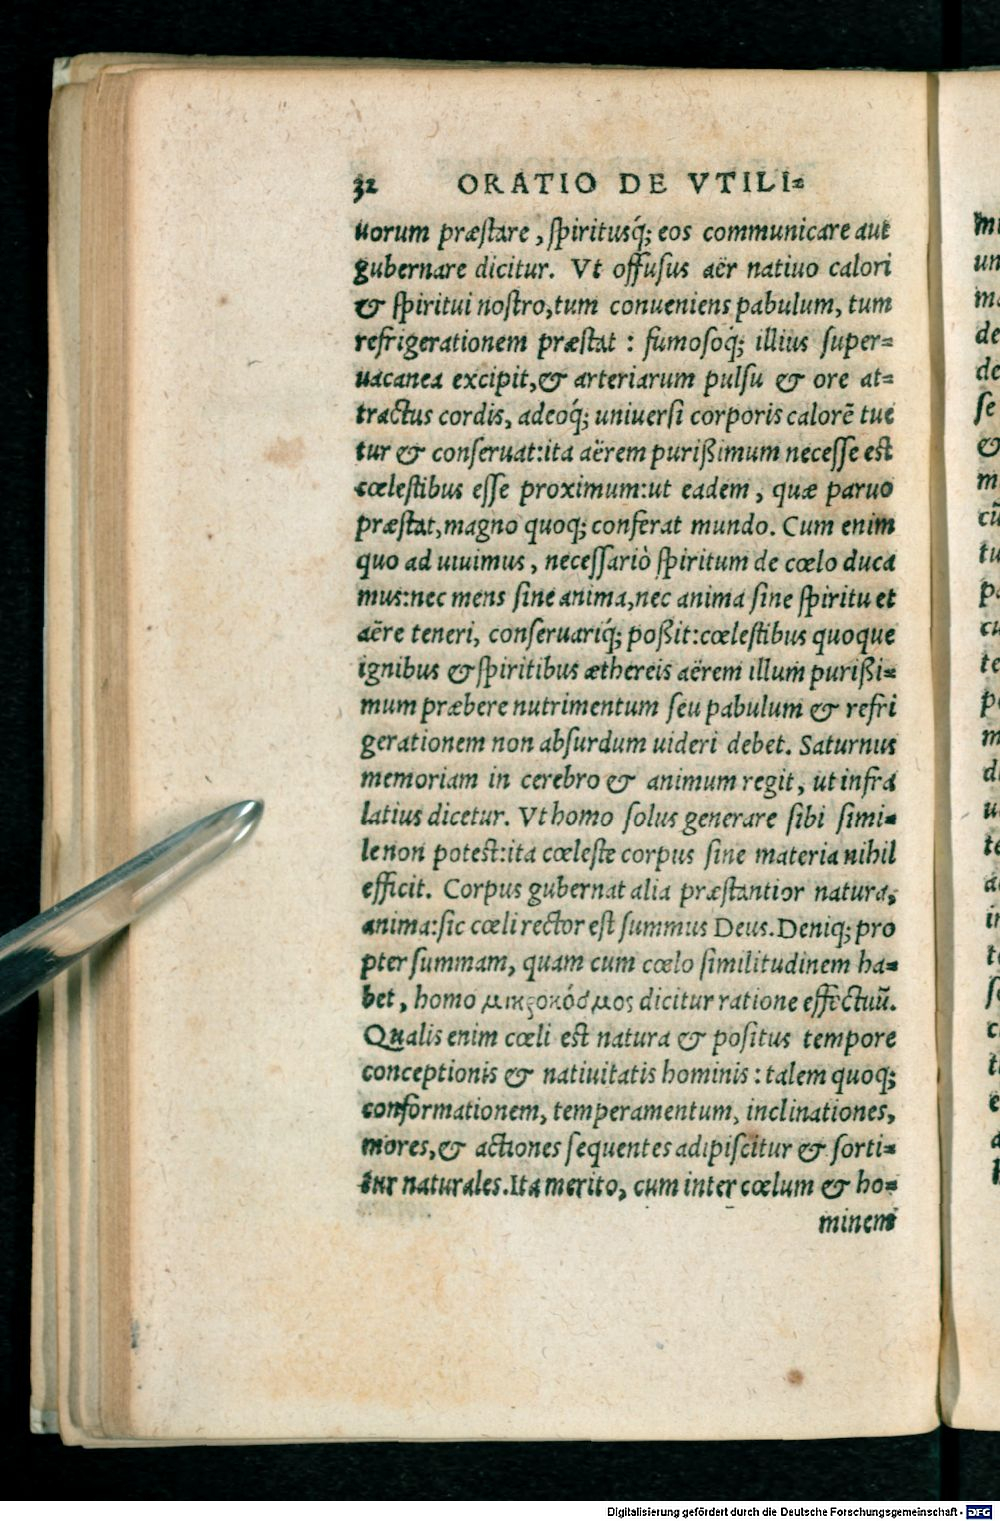 32 ORATIO DE VTILI=
uorum præſtare, ſpirituſq́; eos communicare aut
gubernare dicitur. Vt offuſus aër natiuo calori
& ſpiritui noſtro, tum conueniens pabulum, tum
refrigerationem præſtat : fumoſoq́; illius super=
uacanea excipit, & arteriarum pulſu & ore at=
tractus cordis, adeoq́; uniuerſi corporis calorē tue
tur & conſeruat: ita aërem purißimum neceſſe eſt
cœleſtibus eſſe proximum: ut eadem, quæ paruo
præſtat, magno quoq; conferat mundo. Cum enim
quo ad uiuimus, neceſſariò ſpiritum de cœlo duca
mus: nec mens ſine anima, nec anima ſine ſpiritu et
aëre teneri, conſeruariq́; poßit: cœleſtibus quoque
ignibus & ſpiritibus æthereis aërem illum purißi=
mum præbere nutrimentum ſeu pabulum & refri
gerationem non abſurdum uideri debet. Saturnus
memoriam in cerebro & animum regit, ut infra
latius dicetur. Vt homo ſolus generare ſibi ſimi=
le non poteſt: ita cœleſte corpus ſine materia nihil
efficit. Corpus gubernat alia præſtantior natura,
anima: ſic cœli rector eſt ſummus Deus. Deniq; pro
pter ſummam, quam cum cœlo ſimilitudinem ha=
bet, homo μικροκόσμος dicitur ratione effectuū.
Qualis enim cœli eſt natura & poſitus tempore
conceptionis & natiuitatis hominis : talem quoq;
conformationem, temperamentum, inclinationes,
mores, & actiones ſequentes adipiſcitur & ſorti=
tur naturales. Ita merito, cum inter cœlum & ho=
minem
Digitalisierung gefördert durch die Deutsche Forschungsgemeinschaft - DFG